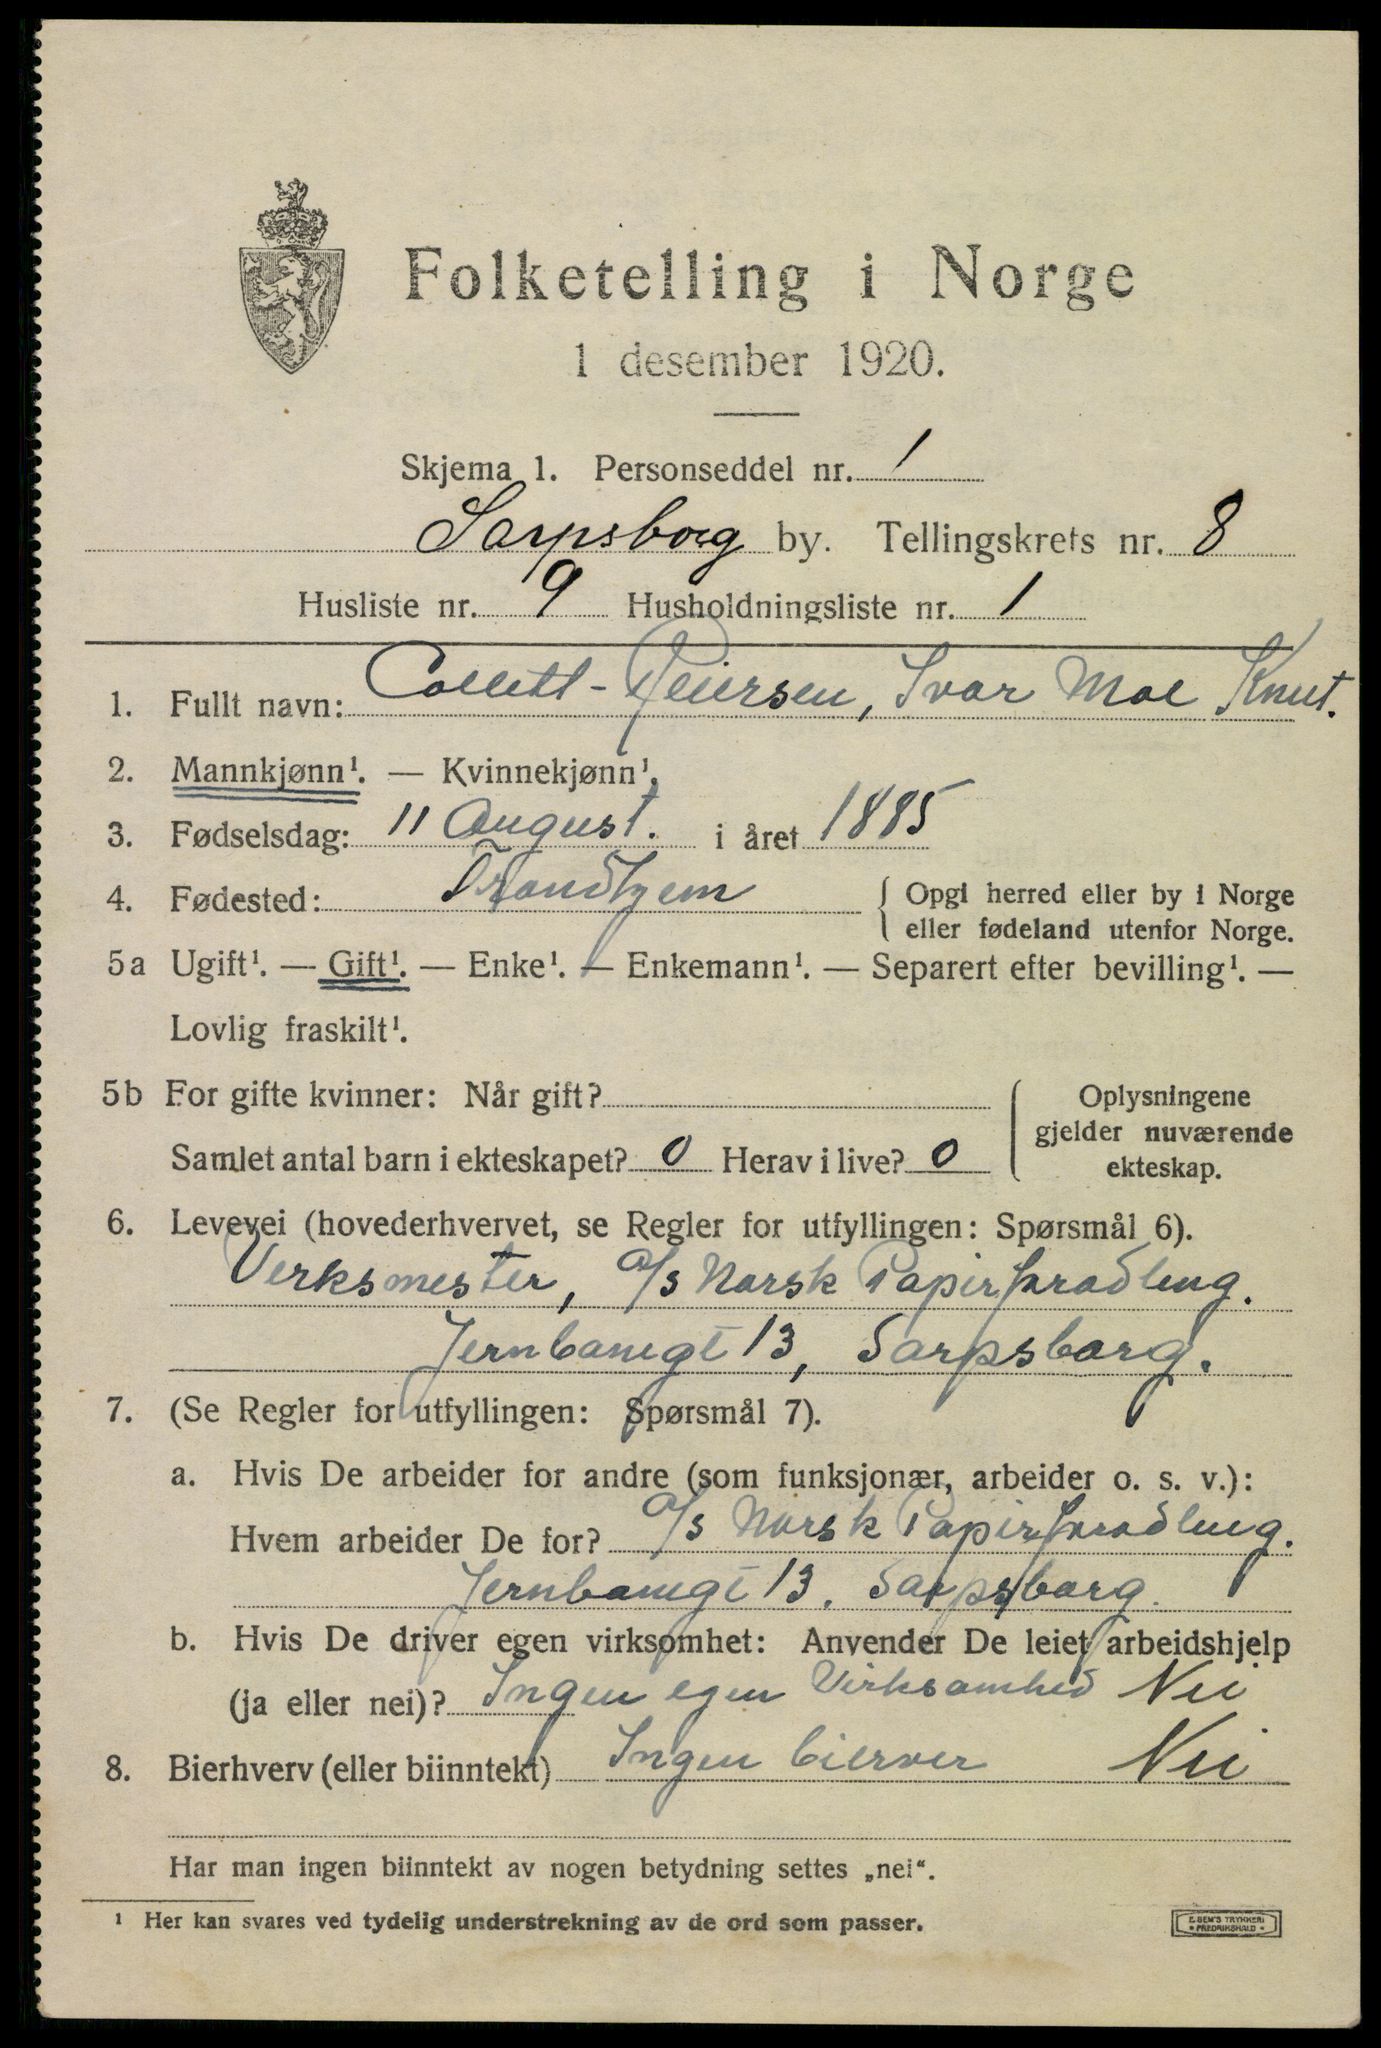 Folketelling i Norge
1 desember 1920.
Skjema 1. Personseddel nr. 1
Sarpsborg by. Tellingskrets nr. 8
Husliste nr. 9 Husholdningsliste nr. 1
1. Fullt navn: Collett-Petersen, Ivar Moe Knut.
2. Mannkjønn¹. — Kvinnekjønn¹.
3. Fødselsdag: 11 August. i året 1885
4. Fødested: Trondhjem { Opgi herred eller by i Norge
eller fødeland utenfor Norge.
5a Ugift¹. — Gift¹. — Enke¹. — Enkemann¹. — Separert efter bevilling¹. —
Lovlig fraskilt¹.
5b For gifte kvinner: Når gift?
Samlet antal barn i ekteskapet? 0 Herav i live? 0
Oplysningene
gjelder nuværende
ekteskap.
6. Levevei (hovederhvervet, se Regler for utfyllingen: Spørsmål 6).
Verksmester, A/S Norsk Papirforædling.
Jernbanegt 13, Sarpsborg.
7. (Se Regler for utfyllingen: Spørsmål 7).
a. Hvis De arbeider for andre (som funksjonær, arbeider o. s. v.):
Hvem arbeider De for? A/S Norsk Papirforædling.
Jernbanegt 13. Sarpsborg.
b. Hvis De driver egen virksomhet: Anvender De leiet arbeidshjelp
(ja eller nei)? Ingen egen Virksomhed Nei
8. Bierhverv (eller biinntekt) Ingen bierver Nei
Har man ingen biinntekt av nogen betydning settes „nei“.
¹ Her kan svares ved tydelig understrekning av de ord som passer.
E. SEM'S TRYKKERI
* FREDRIKSHALD *